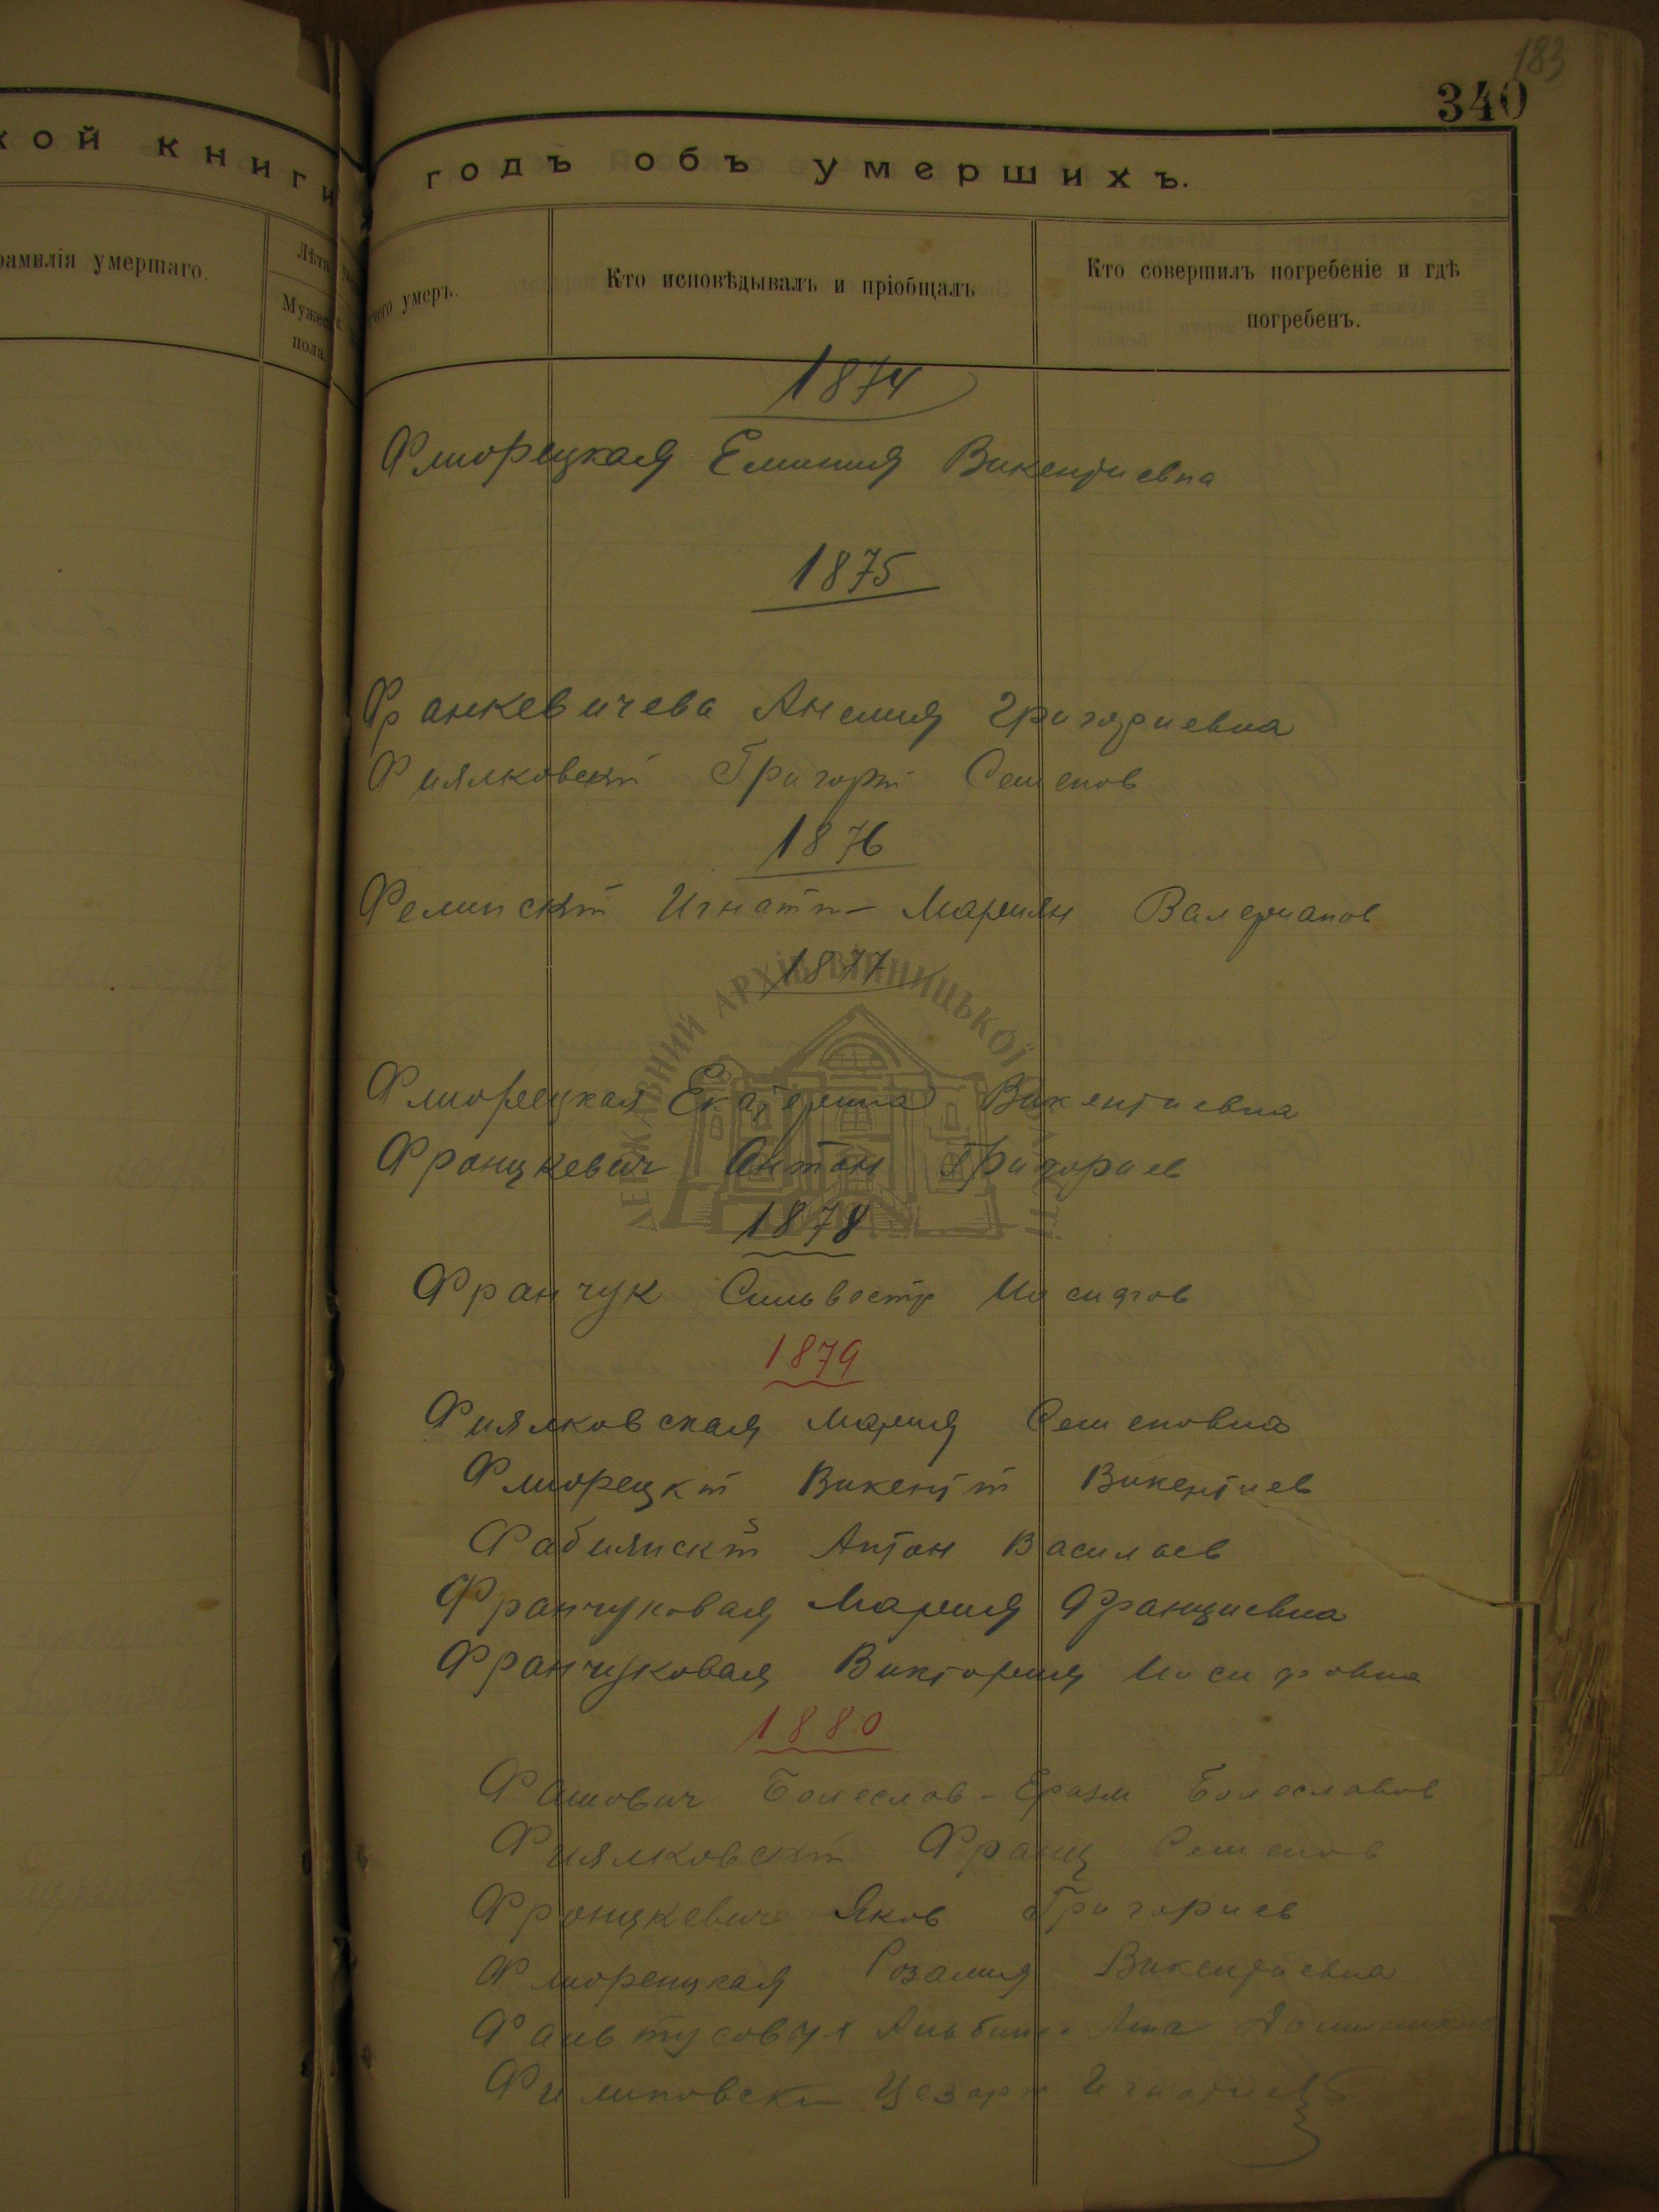 183
340
кой книги
годъ объ умершихъ.
фамилія умершаго.
Лѣта
Мужеск
пола
отчего умеръ.
Кто исповѣдывалъ и пріобщалъ
Кто совершилъ погребеніе и гдѣ
погребенъ.
1874
Флиорецкая Емилия Викентиевна
1875
Франкевичева Анелия Григориевна
Фиялковскій Григорій Семенов
1876
Фелинскій Игнатій - Мариян Валерианов
1877
ДЕРЖАВНИЙ АРХІВ ВІННИЦЬКОЇ ОБЛАСТІ
Флиорецкая Екатерина Викентиевна
Францкевич Антон Григориев
1878
Франчук Сильвестр Иосифов
1879
Фиялковская Мария Семеновна
Флиорецкій Викентій Викентиев
Фабиянскій Антон Васильев
Франчуковая Мария Францевна
Франчуковая Виктория Иосифовна
1880
Фашович Болеслов - Еразм Болеславов
Фиялковскій Франц Семенов
Францкевич Яков Григориев
Флиорецкая Розалия Викентиевна
Фальтусовая Альбина Анна
Филиповски Цезарь Игнатиев